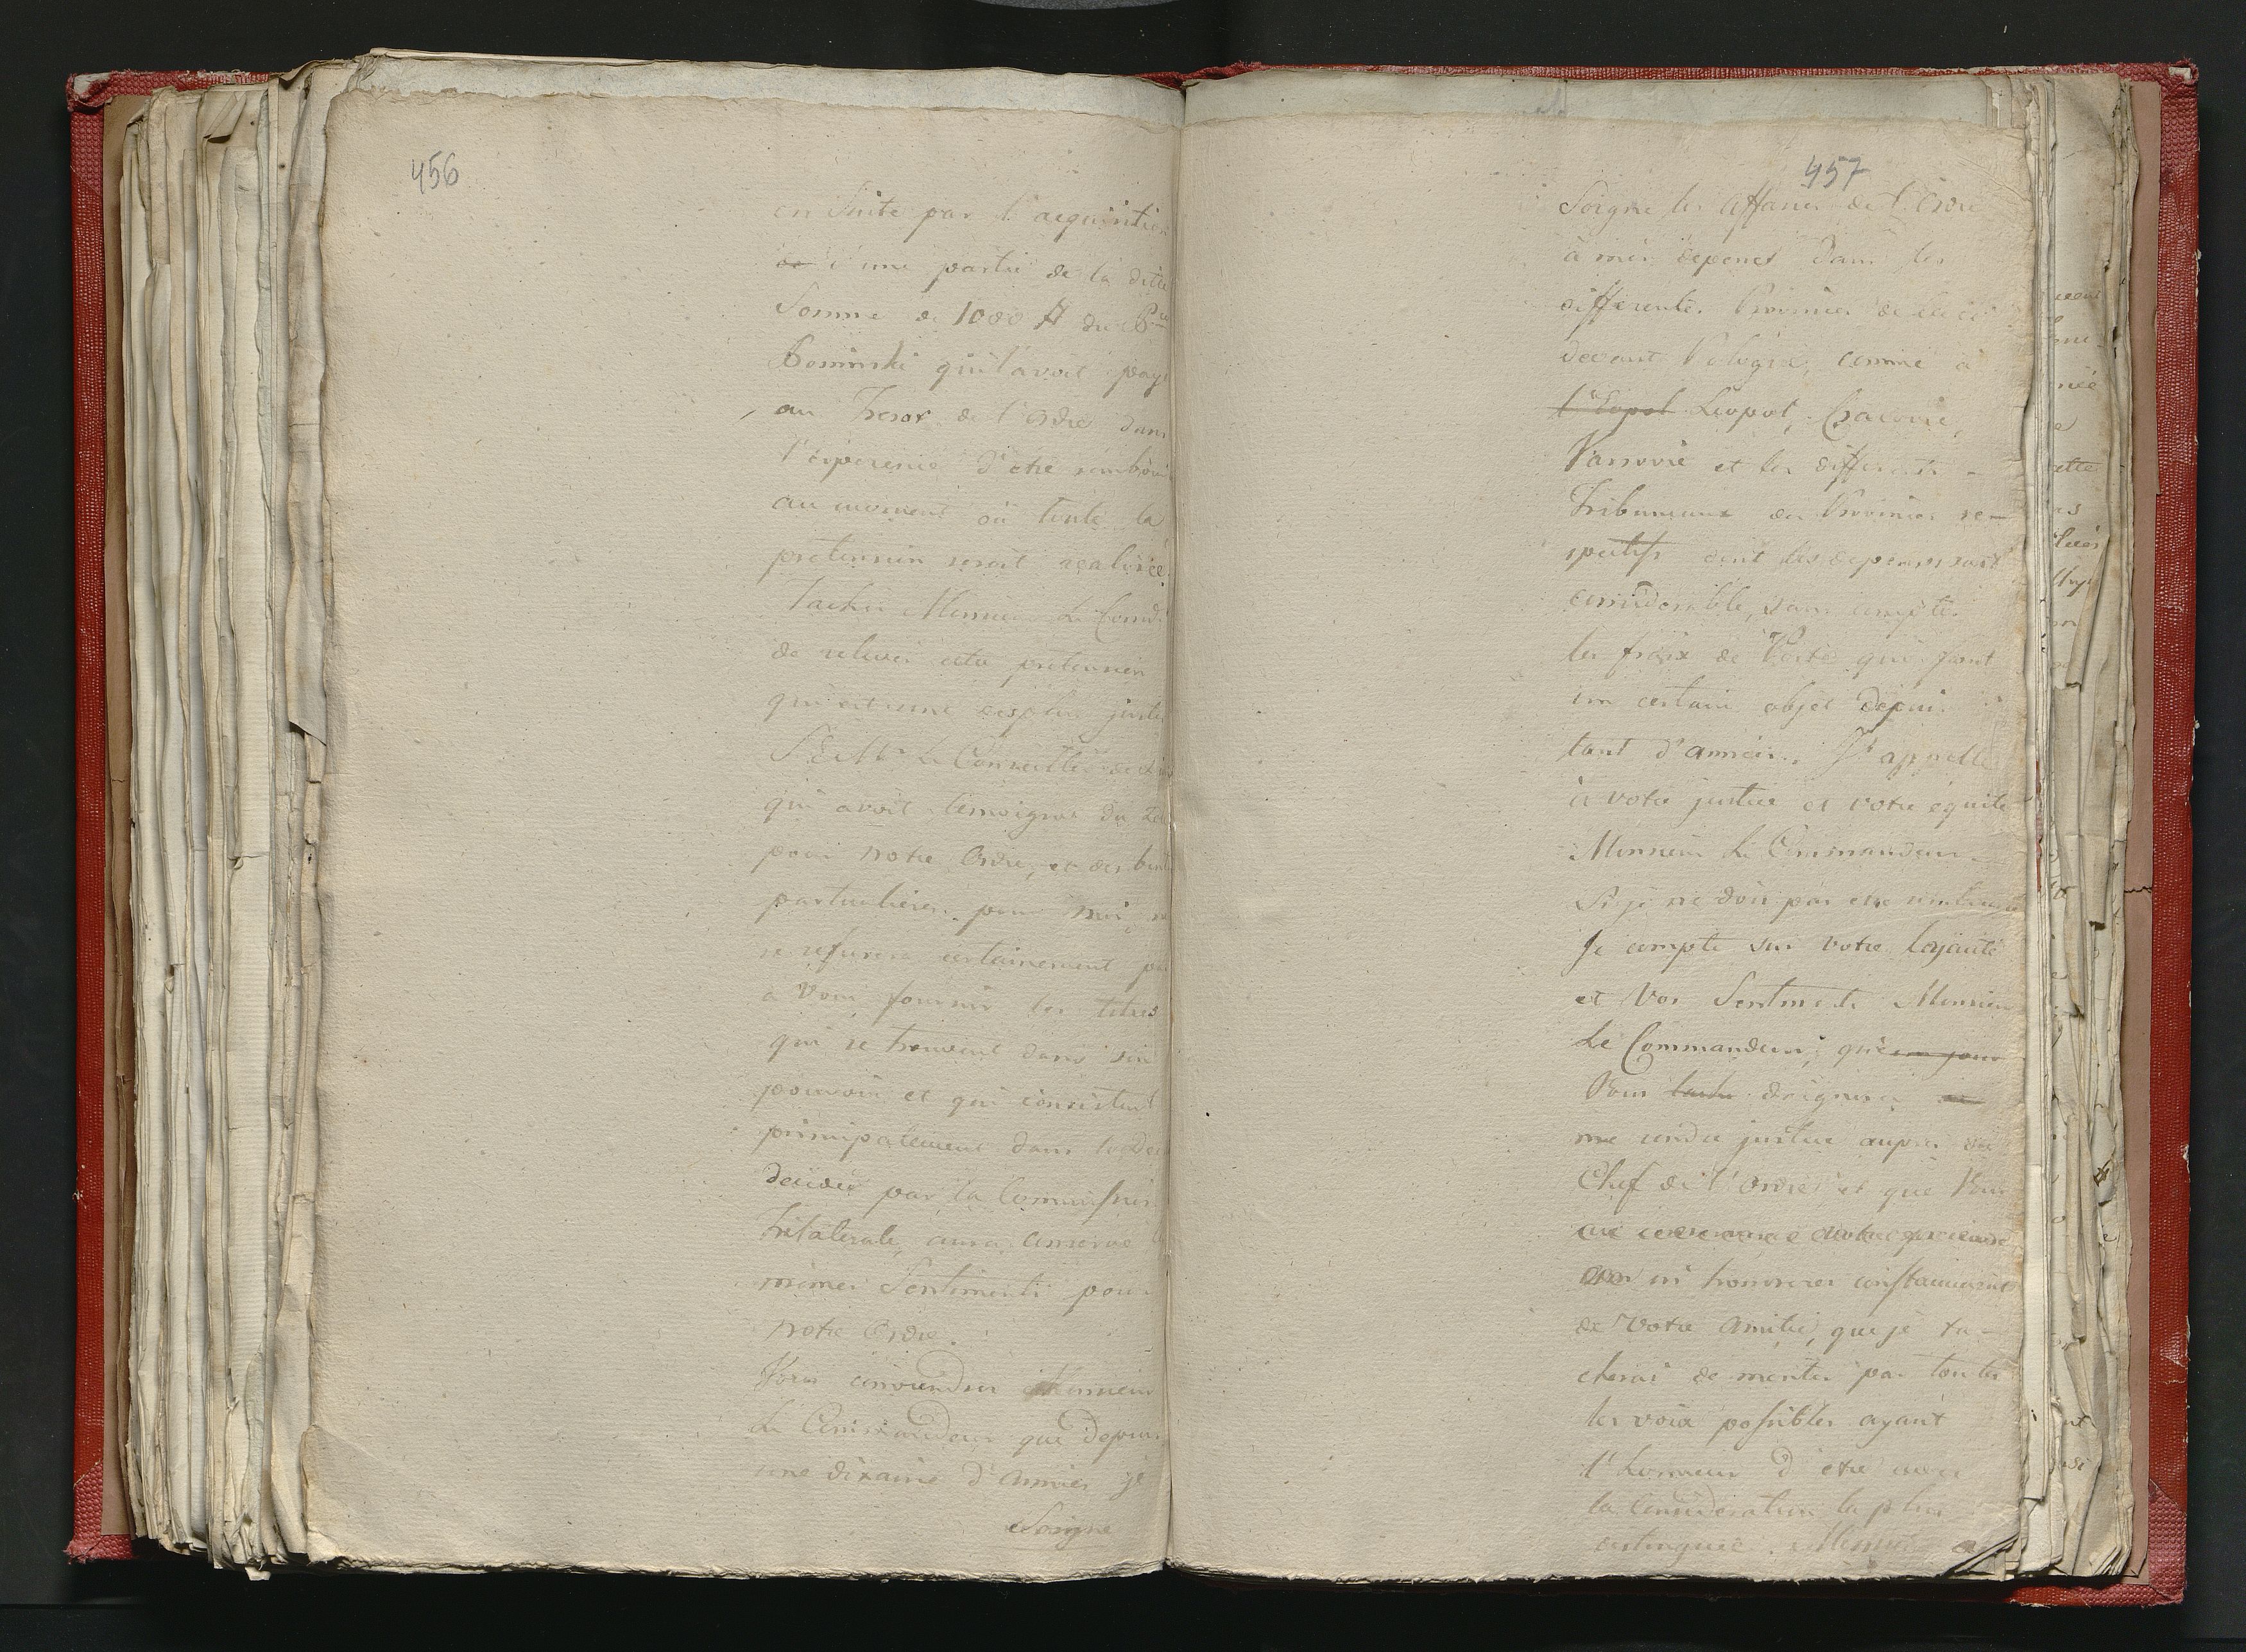 456
en Suite par l'acquisition
de d'une partie de la dite
Somme de 1000 # du P
Poninski qui l'avoit paye
au Tresor de l'Ordre dans
l'esperence d'etre rembour
au moment où toute la
pretension seroit realisée.
Tachez Monsieur Le Comd
de relever cette pretension
qui est une des plus juste
S. E. Mr Le Conseiller
qui avoit temoigné du Ze
pour notre Ordre, et des bont
particulieres pour moi, ne
se refusera certainement pa
a Vous fournir les titres
qui se trouvent dans son
pouvoir et qui consistent
principalement dans le
decidé par la Commission
Trilaterale, aura conservé
mêmes Sentiments pour
notre Ordre.
Vous conviendrez Monsieur
Le Commandeur que depuis
une dixaine d'années je
Soigne
457
Soigne les Affaires de l'Ordre
à mes depenses dans les
differentes Provinces de la ci
devant Pologne, comme à
l'Eopol Leopol, Cracovie,
Varsovie et les differents
Tribunaux des Provinces re-
spectifs dont les depenses sont
considerable, sans compter
les fraix de Poste qui font
un certain objet depuis
tant d'années. J'appelle
à votre justice et votre équité
Monsieur Le Commandeur
Si je ne dois pas etre rembourse
Je compte sur votre loyauté
et Vos Sentments Monsieur
Le Commandeur, que un jour
Vous daignerez
me rendre justice aupres du
Chef de l'Ordre et que Vous
m'honnorerez constamment
de Votre Amitié, que je ta-
cherai de meriter par toutes
les voix possibles ayant
l'honneur d'etre avec
la Consideration la plus
distinguée. Monsieur